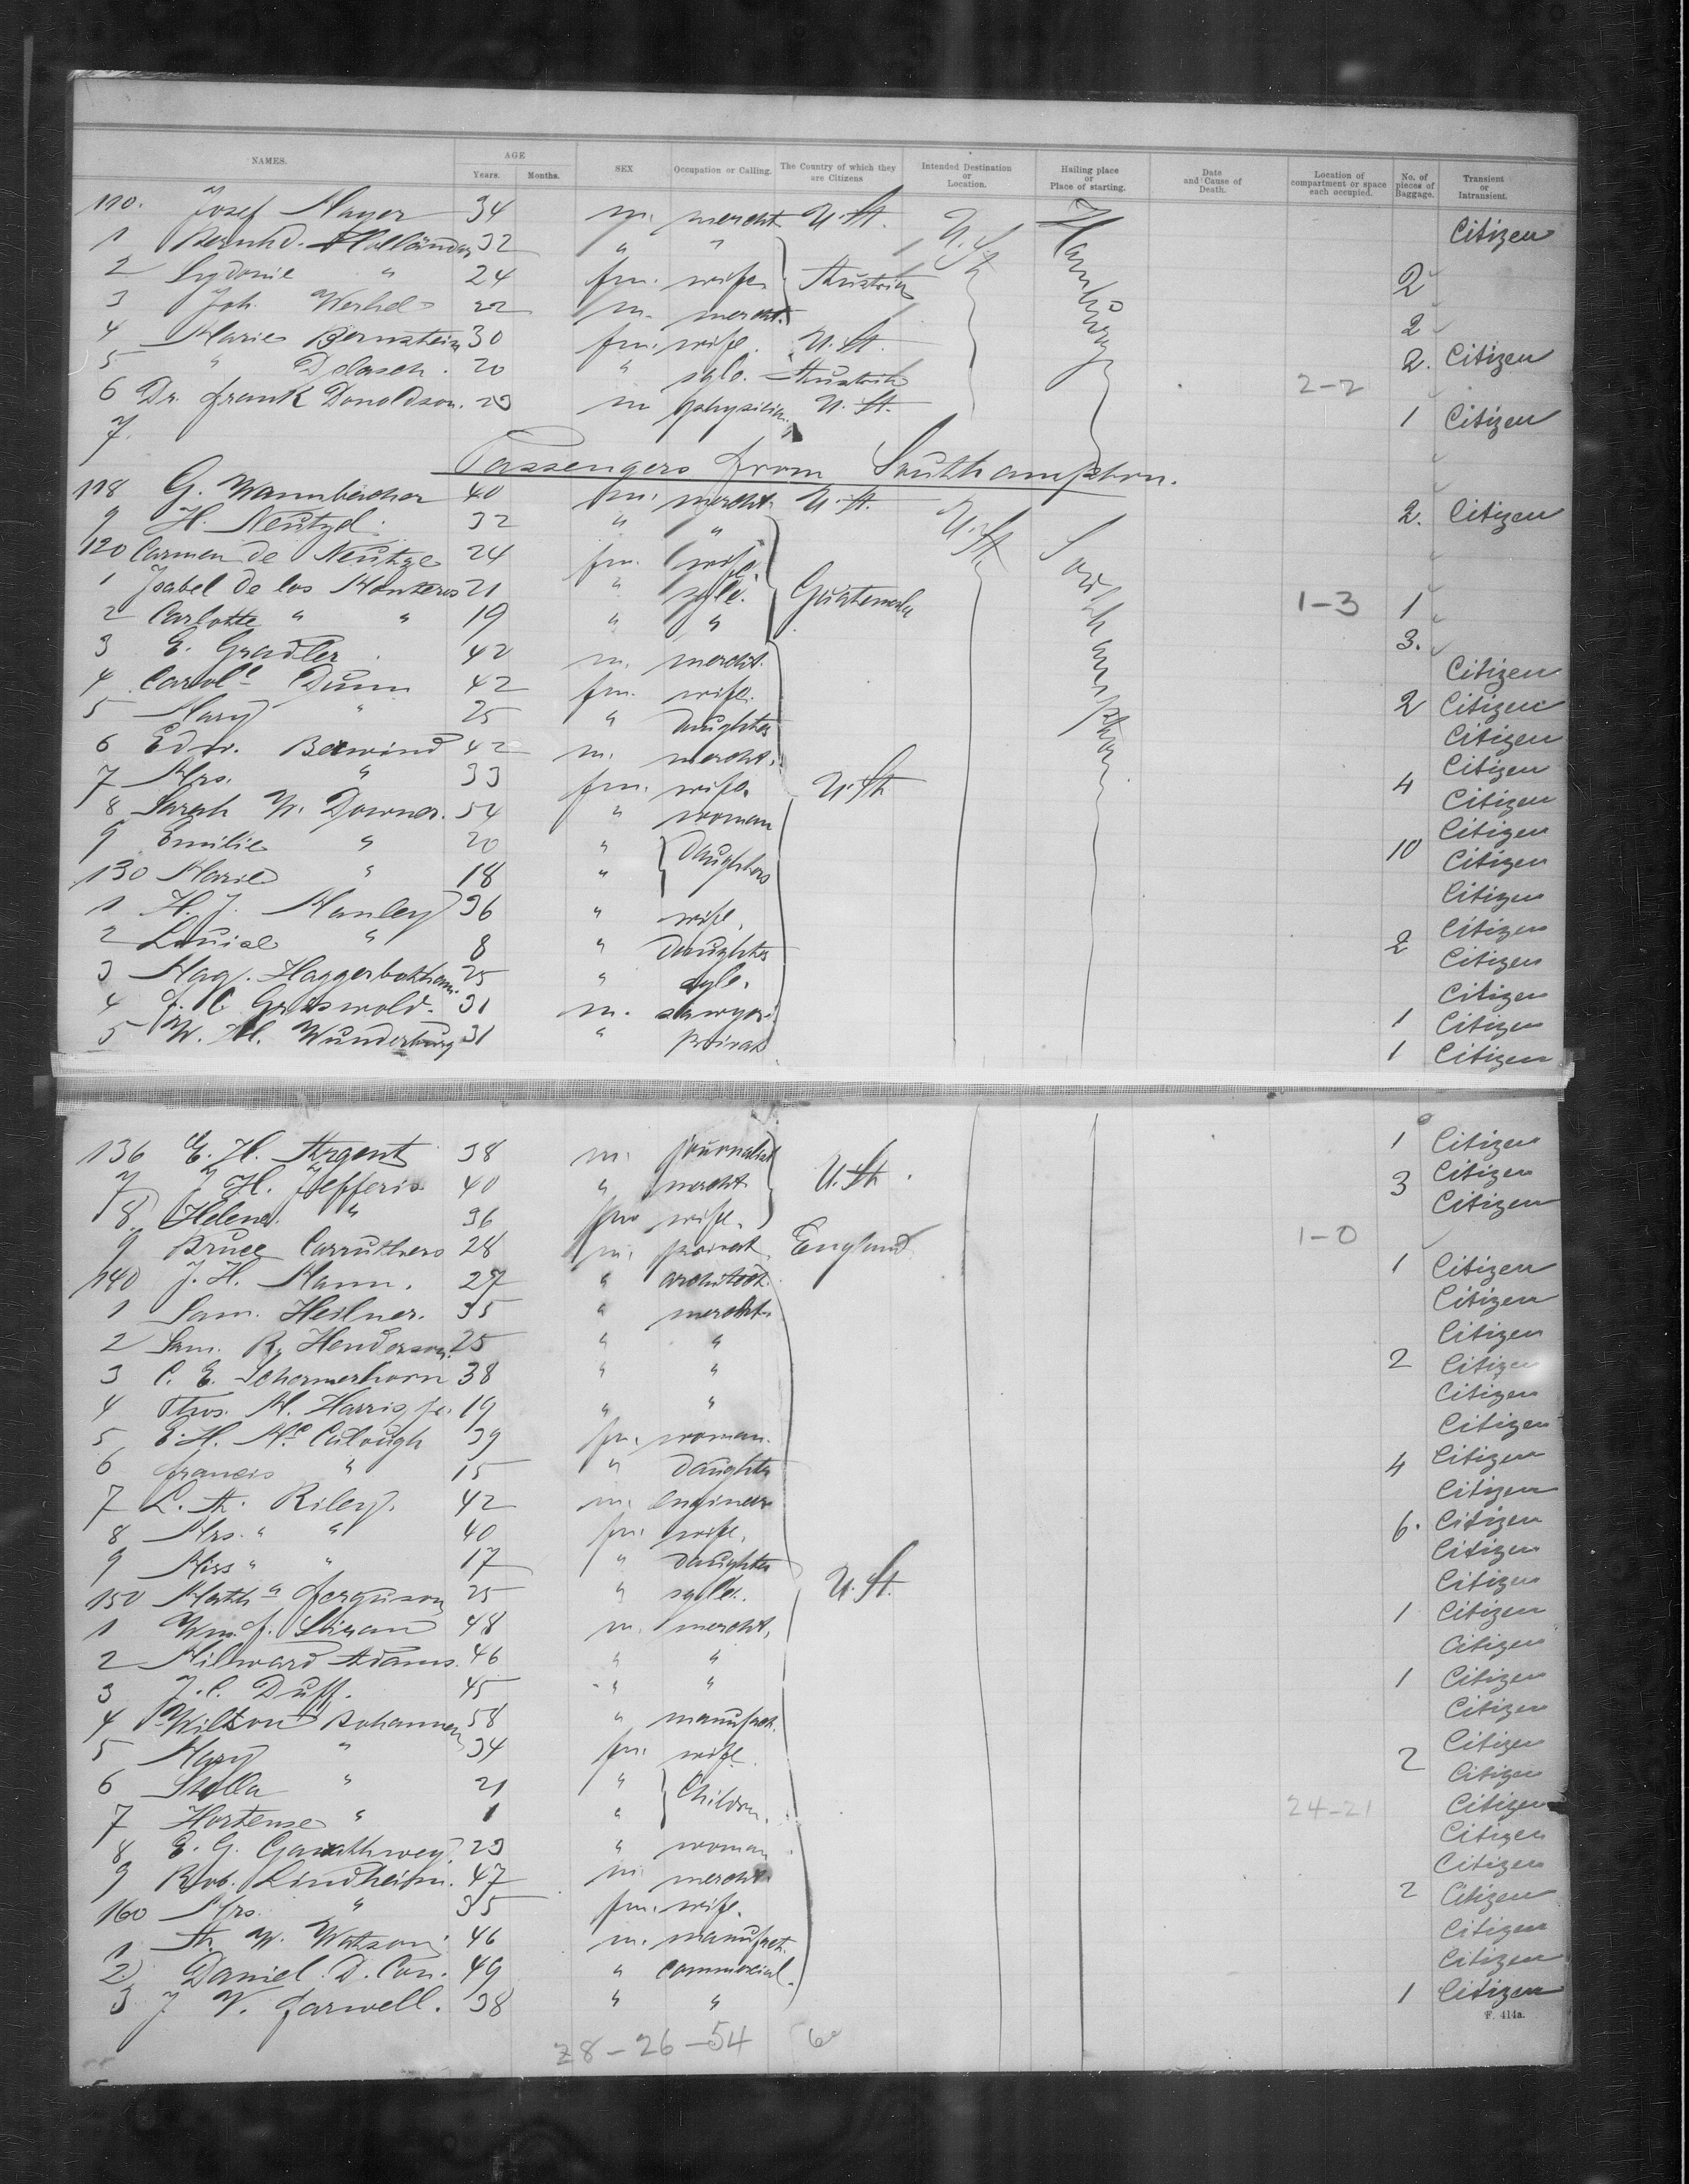 NAMES. AGE Years. Months. SEX Occupation or Calling. The Country of which they are Citizens Intended Destination or Location. Hailing place or Place of starting. Date and Cause of Death. Location of compartment or space each occupied. No. of pieces of Baggage. Transient or Intransient.
110. Josef Mayer 34 m. mercht U. St. U. St. Hamburg Citizen
1 Bernhd. Holländer 32 " "
2 Sydonie " 24 fm. wife Austria 2
3 Joh. Werhel 22 m. mercht. 2
4 Marie Bernstein 30 fm. wife. U. St. 2. Citizen
5 " Dlasch. 20 " sgle. Austria 2-2
6 Dr. Frank Donoldson. 29 m physician U. St. 1 Citizen
7.
Passengers from Southampton.
118 G. Wannbacher 40 m. mercht. U. St. U. St. Southampton 2. Citizen
9 H. Neutzel. 32 " "
120 Carmen de Neutze 24 fm. wife.
1 Isabel de los Monteros 21 " sgle. Guatemala 1-3 1
2 Carlotte " " 19 " " 3.
3 E. Gradler 42 m. mercht. Citizen
4 Carole Dunn 42 fm. wife. 2 Citizen
5 Mary " 25 " daughter Citizen
6 Edw. Berwind 42 m. mercht. Citizen
7 Mrs. " 33 fm. wife. U. St. 4 Citizen
8 Sarah W. Downer. 54 " woman Citizen
9 Emilie " 20 " Daughters 10 Citizen
130 Marie " 18 " Citizen
1 H. J. Manley 36 " wife. Citizen
2 Louise " 8 " Daughter 2 Citizen
3 Mag. Haggerbotham. 25 " sgle. Citizen
4 J. C. Griswold. 31 m. lawyer 1 Citizen
5 W. H. Wunderburg 31 " privat 1 Citizen
136 E. H. Argent 38 m. journalist 1 Citizen
7 J. H. Jefferis 40 " mercht U. St. 3 Citizen
8 Helene " 36 fm wife. Citizen
9 Bruce Carruthers 28 m. privat England 1-0
140 J. H. Mann. 27 " architect 1 Citizen
1 Sam. Heilner. 35 " mercht. Citizen
2 Sam. R. Henderson. 25 " " Citizen
3 C. E. Schermerhorn 38 " " 2 Citizen
4 Thos. M. Harris jr. 19 " " Citizen
5 E. H. Mc Culough 39 fm. woman. Citizen
6 Francis " 15 " Daughter 4 Citizen
7 L. A. Riley. 42 m. engineer Citizen
8 Mrs. " " 40 fm. wife. 6. Citizen
9 Miss " " 17 " Daughter Citizen
150 Matha Ferguson 25 " sgle. U. St. Citizen
1 Wm. J. 48 m. mercht. 1 Citizen
2 Milward Adams. 46 " " Citizen
3 J. C. Duff. 45 " " 1 Citizen
4 Wilson Bohannen 58 " manufact. Citizen
5 Mary " 34 fm. wife. 2 Citizen
6 Stella " 21 " Children. Citizen
7 Hortense " 1 " 24-21 Citizen
8 E. G. 23 " woman Citizen
9 Rob. Lindheim. 47 m. mercht. Citizen
160 Mrs. " 35 fm. wife. 2 Citizen
1 A. W. Watson 46 m. manufact. Citizen
2 Daniel D. Con. 49 " commercial. Citizen
3 J V. Farwell. 38 " " 1 Citizen
F. 414a.
28-26-54 60